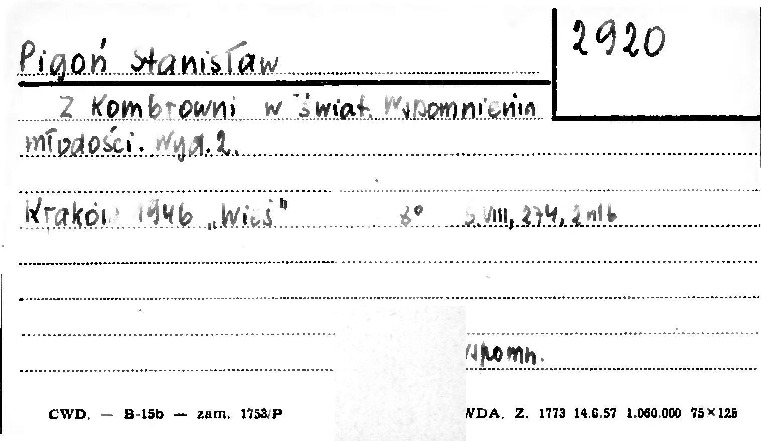 2920
Pigoń Stanisław
Z Kombrowni w świat. Wspomnienia
młodości. Wyd. 2.
Kraków 1946 „Wieś" 8° s. VIII, 274, 2 nlb
wspomn.
CWD. — B-15b — zam. 1753/P WDA. Z. 1773 14.6.57 1.060.000 75×125